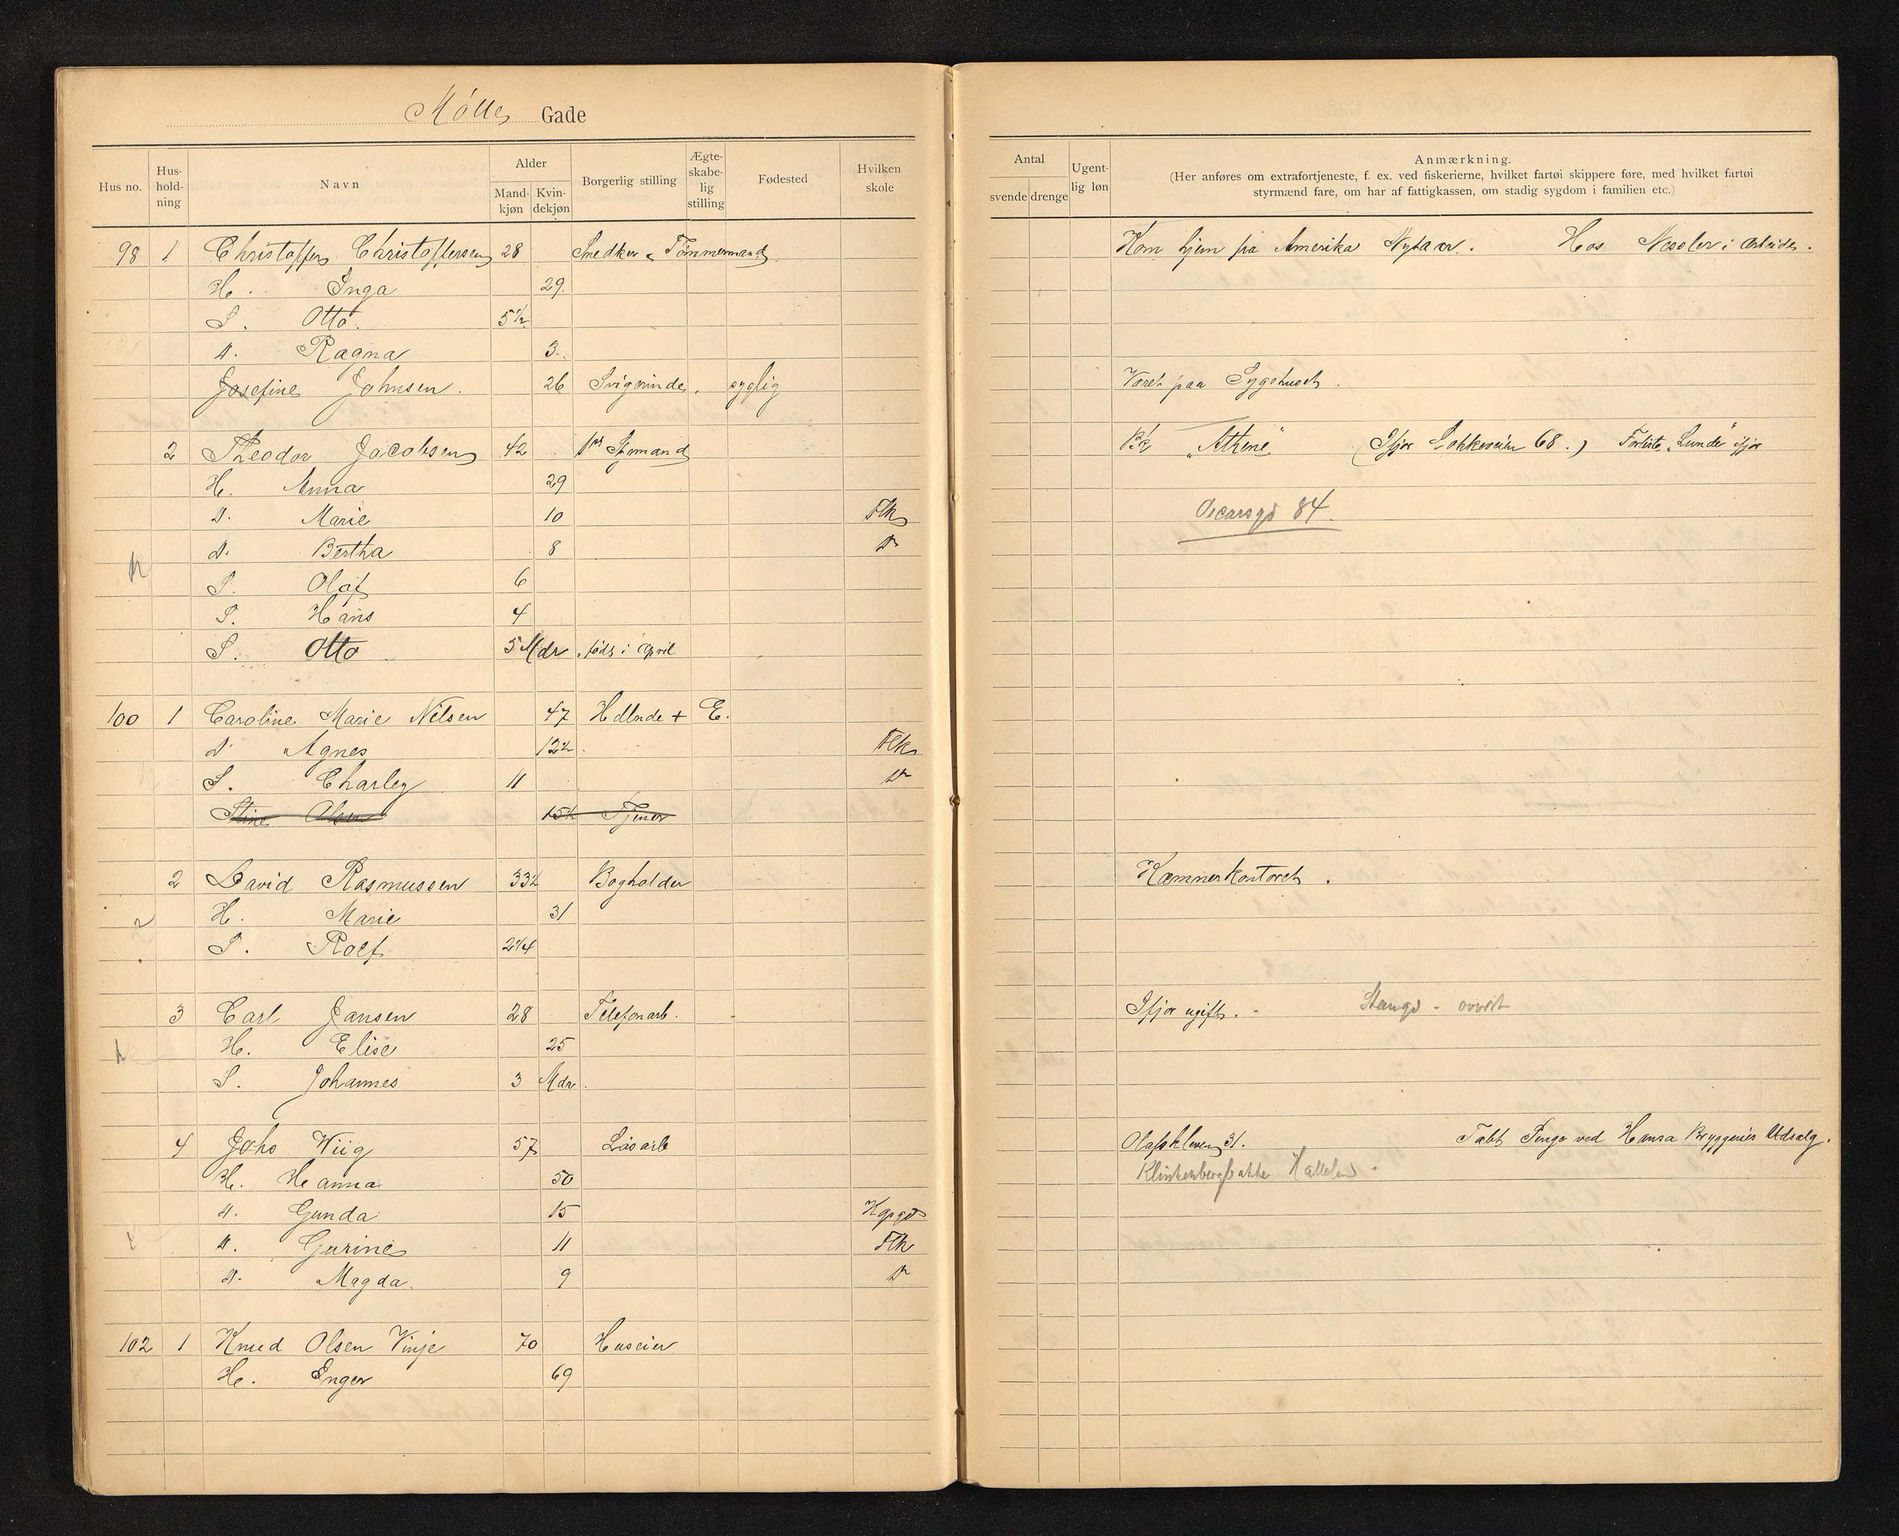 Mølle Gade
Hus no. Hus-holdning Navn Alder Mandkjøn Kvindekjøn Borgerlig stilling Ægteskabelig stilling Fødested Hvilken skole
Antal svende drenge Ugentlig løn Anmærkning.
(Her anføres om extrafortjeneste, f. ex. ved fiskerierne, hvilket fartøi skippere føre, med hvilket fartøi
styrmænd fare, om har af fattigkassen, om stadig sygdom i familien etc.)
98 1 Christoffer Christoffersen 28 Snedker & Tømmermand Kom hjem fra Amerika Nytaar. Hos Næsler i arbeide.
H. Inga 29.
S. Otto. 5 1/2
D. Ragna 3.
Josefine Johnsen. 26 Svigrinde, syglig Været paa Sygehuset.
2 Theodor Jacobsen 42 1ste Stymand Bk "Athene" (Ifjor Løkkeveien 68.) Forliste "Lunde" ifjor
H. Anna 29
D. Marie 10 Flk Oscarsgd 84
D. Bertha 8 Do
S. Olaf 6
S. Hans 4
S. Otto 5 Mdr født i April
100 1 Caroline Marie Nilsen 47 Hdlnde + E.
D. Agnes 12 1/2 Flk
S. Charley 11 Do
Stine Olsen 15 1/2 Tjener
2 David Rasmussen 33 1/2 Bogholder Kæmnerkontoret.
H. Marie 31
S. Rolf 2 1/4
3 Carl Jansen 28 Telefonarb. Ifjor ugift. - Stangd -
H. Elise 25
S. Johannes 3 Mdr.
4 Johs Wiig 57 Løsarb Olafskleven 31. Tabt Penge ved Hansa Bryggeries Udsalg.
H. Hanna 50 Klinkenbergbakke
D. Gunda 15 Kgsgd
D. Gurine 11 Flk
D. Magda. 9 Do
102 1 Knud Olsen Vinje 70 Huseier
H. Inger 69